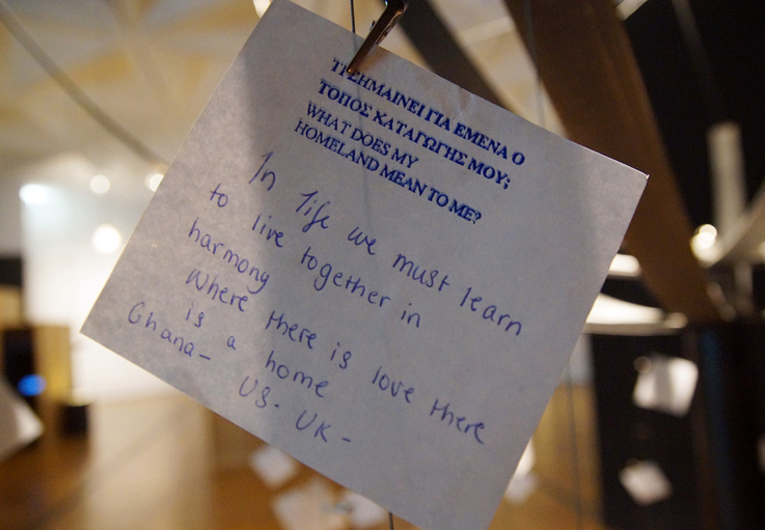 ΤΙ ΣΗΜΑΙΝΕΙ ΓΙΑ ΕΜΕΝΑ Ο
ΤΟΠΟΣ ΚΑΤΑΓΩΓΗΣ ΜΟΥ;
WHAT DOES MY
HOMELAND MEAN TO ME?
In life we must learn
to live together in
harmony
Where there is love there
is a home
Ghana-
US- UK-